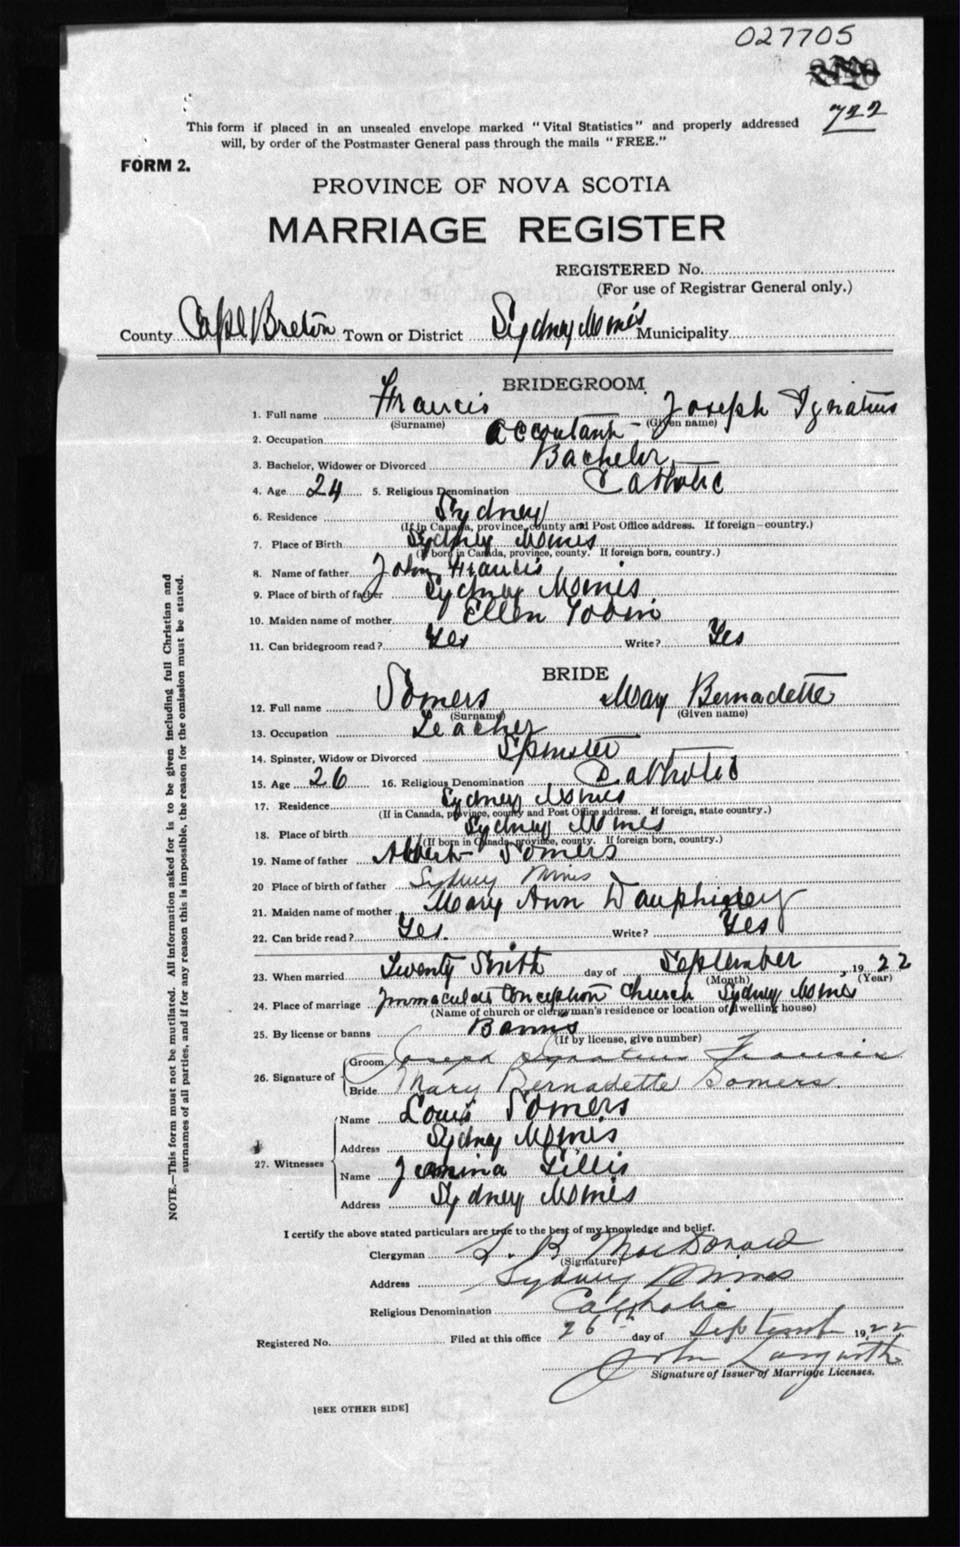 027705
722
This form if placed in an unsealed envelope marked "Vital Statistics" and properly addressed
will, by order of the Postmaster General pass through the mails "FREE."
FORM 2.
PROVINCE OF NOVA SCOTIA
MARRIAGE REGISTER
REGISTERED No.
(For use of Registrar General only.)
County Cape Breton Town or District Sydney Mines Municipality
BRIDEGROOM
1. Full name Francis Joseph Ignatius
(Surname) (Given name)
2. Occupation accountant
3. Bachelor, Widower or Divorced Bachelor
4. Age 24 5. Religious Denomination Catholic
6. Residence Sydney
(If in Canada, province, county and Post Office address. If foreign—country.)
7. Place of Birth Sydney Mines
(If born in Canada, province, county. If foreign born, country.)
8. Name of father John Francis
9. Place of birth of father Sydney Mines
10. Maiden name of mother Ellen Tobin
11. Can bridegroom read? Yes Write? Yes
BRIDE
12. Full name Somers May Bernadette
(Surname) (Given name)
13. Occupation Teacher
14. Spinster, Widow or Divorced Spinster
15. Age 26 16. Religious Denomination Catholic
17. Residence Sydney Mines
(If in Canada, province, county and Post Office address. If foreign, state country.)
18. Place of birth Sydney Mines
(If born in Canada, province, county. If foreign born, country.)
19. Name of father Albert Somers
20 Place of birth of father Sydney Mines
21. Maiden name of mother Mary Ann
22. Can bride read? Yes. Write? Yes
23. When married Twenty Sixth day of September, 1922
(Month) (Year)
24. Place of marriage Immaculate Conception Church Sydney Mines
(Name of church or clergyman's residence or location of dwelling house)
25. By license or banns Banns
(If by license, give number)
26. Signature of
Groom Joseph Ignatius Francis
Bride Mary Bernadette Somers.
27. Witnesses
Name Louis Somers
Address Sydney Mines
Name Jemina Gillis
Address Sydney Mines
I certify the above stated particulars are true to the best of my knowledge and belief.
Clergyman B MacDonald
(Signature)
Address Sydney Mines
Religious Denomination Catholic
Registered No. Filed at this office 26th day of September 1922
John
Signature of Issuer of Marriage Licenses.
[SEE OTHER SIDE]
NOTE.—This form must not be mutilated. All information asked for is to be given including full Christian and
surnames of all parties, and if for any reason this is impossible, the reason for the omission must be stated.